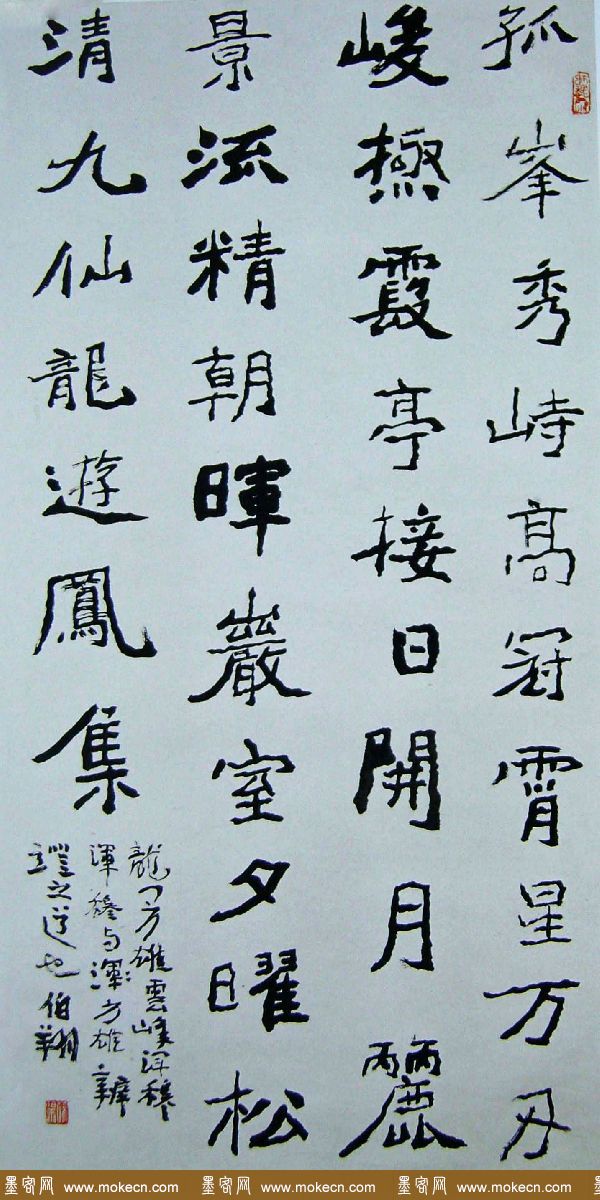 孤峯秀峙高冠霄星万刃
峻極霞亭接日開月麗
景流精朝暉巖室夕曜松
清九仙龍遊鳳集
龍门方雄雲峰渾穆
渾穆与方雄辯
證之道也 伯翔
墨客网 www.mokecn.com 墨客网 www.mokecn.com 墨客网 www.mokecn.com 墨客网 www.mokecn.com